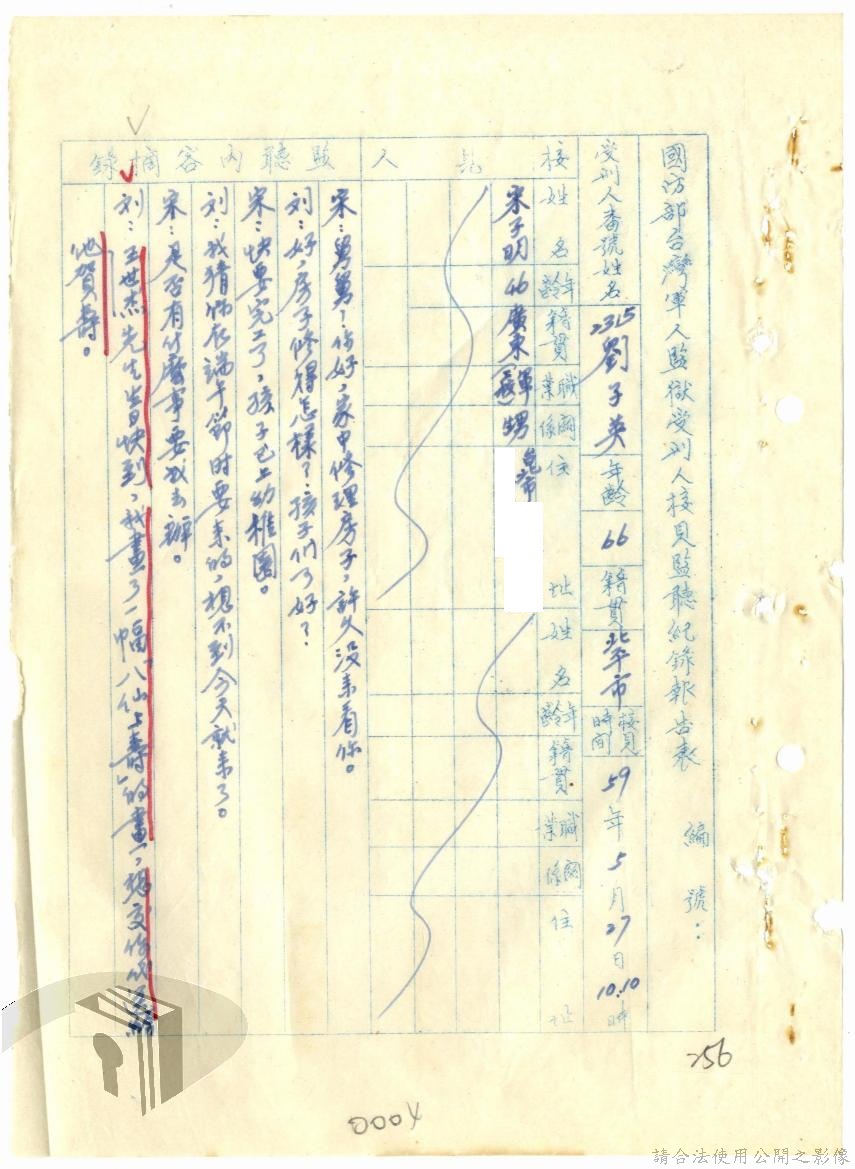 國防部台灣軍人監獄受刑人接見監聽紀錄報告表
編號：
受刑人番號姓名 2315 劉子英 年齡 66 籍貫 北平市 接見時間 59年5月27日10:10時
接見人
姓名 年齡 籍貫 職業 關係 住址 姓名 年齡 籍貫 職業 關係 住址
宋子明 46 廣東 軍 甥
監聽內容摘錄
宋：舅舅？你好，家中修理房子，許久沒來看你。
刘：好，房子修得怎樣？孩子们可好？
宋：快要完工了，孩子已上幼稚園。
刘：我猜你在端午節时要来的，想不到今天就来了。
宋：是否有什麼事要我去辦。
刘：王世杰先生生日快到，我畫了一幅「八仙上壽」的畫，想交你
他賀壽。
256
0004
請合法使用公開之影像